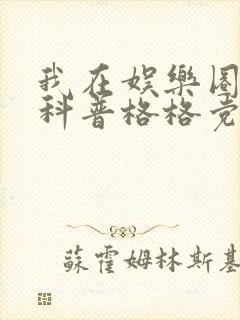 我在娱樂圈
科普格格党
蘇霍姆林斯基